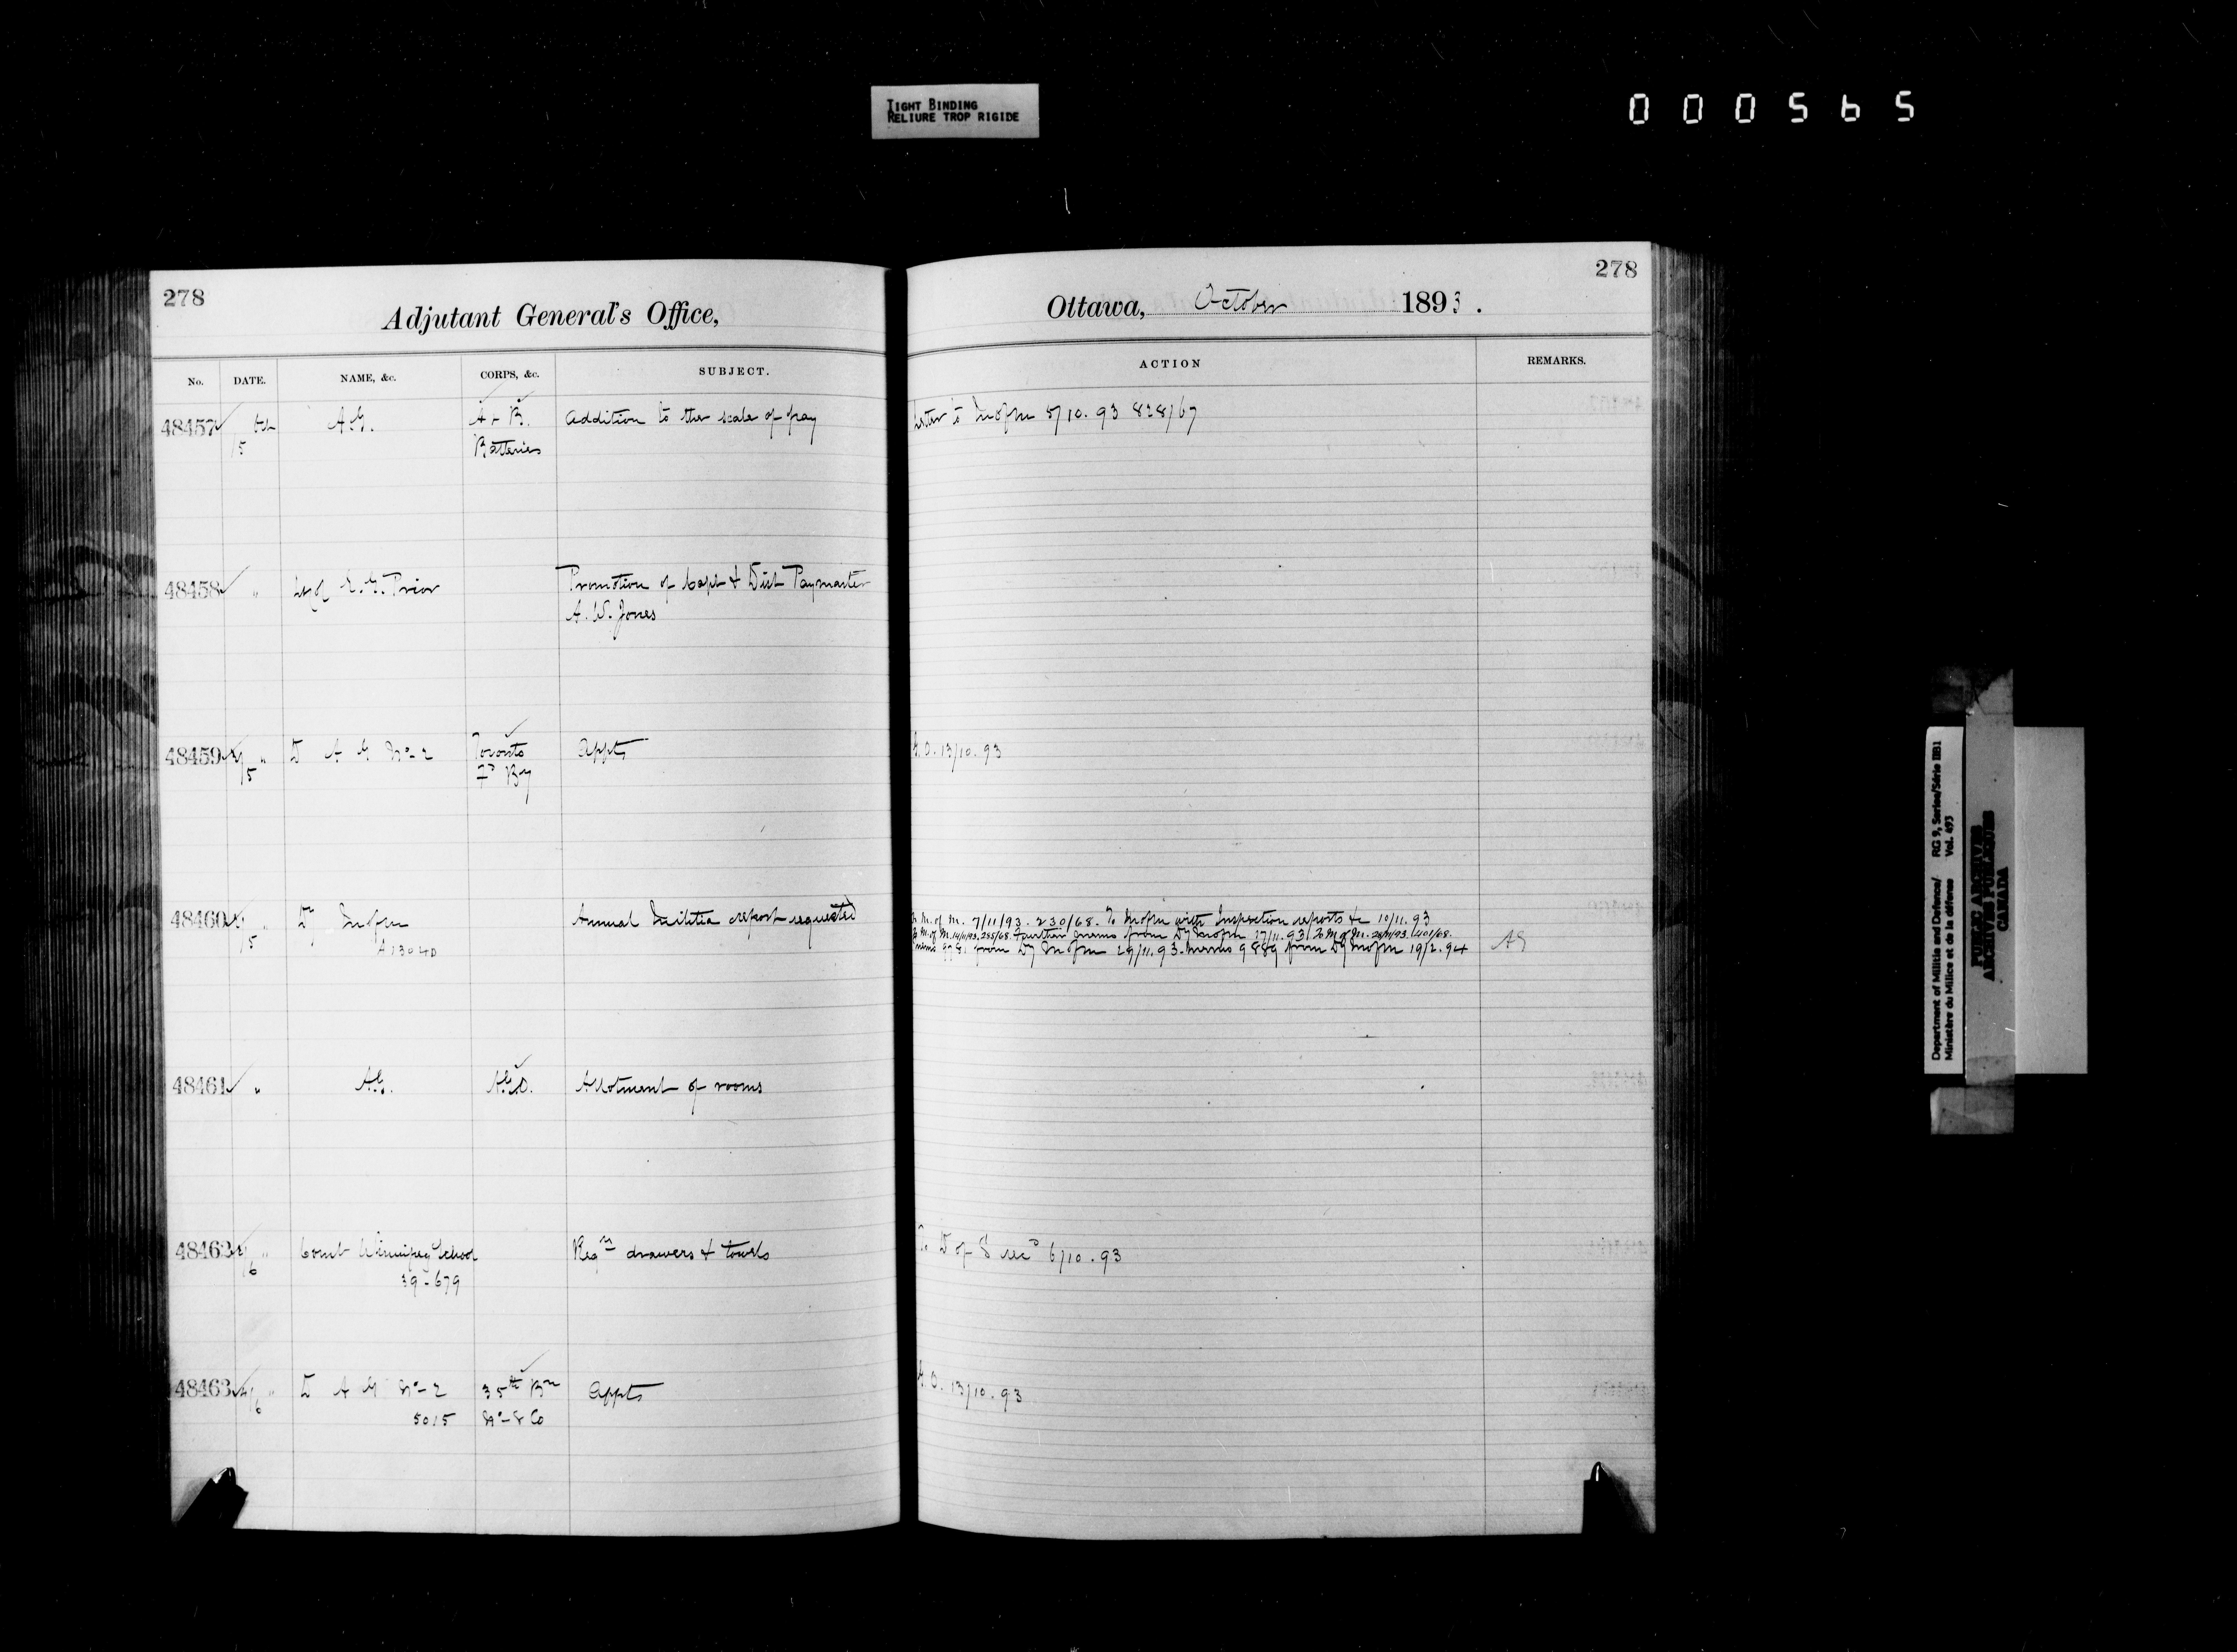 TIGHT BINDING
RELIURE TROP RIGIDE
000565
278
Adjutant General's Office,
No. DATE. NAME, &c. CORPS, &c. SUBJECT.
48457 6th A.G. A + B. Addition to the scale of pay
5 Batteries
48458 " E. G. Prior Promotion of Capt & Dist Paymaster
A. W. Jones
48459 " D A G No 2 Toronto Appts
5 Fd By
48460 " Dy M of M Annual Militia report requested
5 A13040
48461 " A.G. A.G.O. Allotment of rooms
48462 " Comt Winnipeg School Reqn drawers & towels
6 39-679
48463 " D A G No 2 35th Bn Appts
6 5015 No 8 Co
278
Ottawa, October 1893.
ACTION REMARKS.
Letter to M of M 5/10.93 828/67
G.O. 13/10.93
M. of M. 7/11/93. 230/68. To M of M with Inspection reports &c 10/11.93
To M of M. 14/11/93. 255/68. Further memo from Dy M of M 17/11.93. To M of M. 401/68.
from Dy M of M 29/11.93. memo 9889 from Dy M of M 19/2.94 AG
To D of S 6/10.93
G.O. 13/10.93
Department of Militia and Defence/ RG 9, Series/Série IIB1
Ministère du Milice et de la défense Vol. 493
PUBLIC ARCHIVES
ARCHIVES PUBLIQUES
CANADA